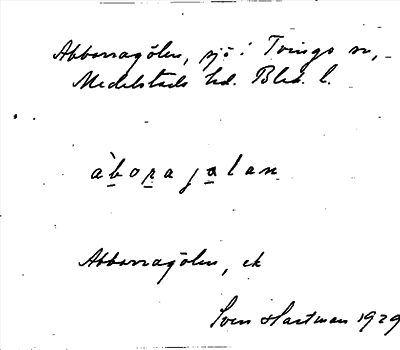 Abborragölen, sjö i Tvings sn,
Medelstads hd. Blek. l.
àbora jalan
Abborragölen, ek
Sven Hartman 1929